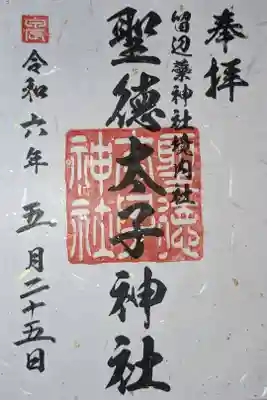 奉拝
留辺蘂神社境内社
聖徳太子神社
聖徳太子神社
令和六年五月二十五日